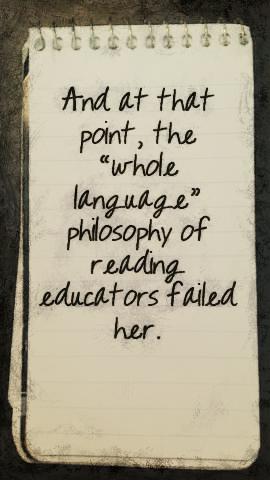 And at that
point, the
“whole
language”
philosophy of
reading
educators failed
her.